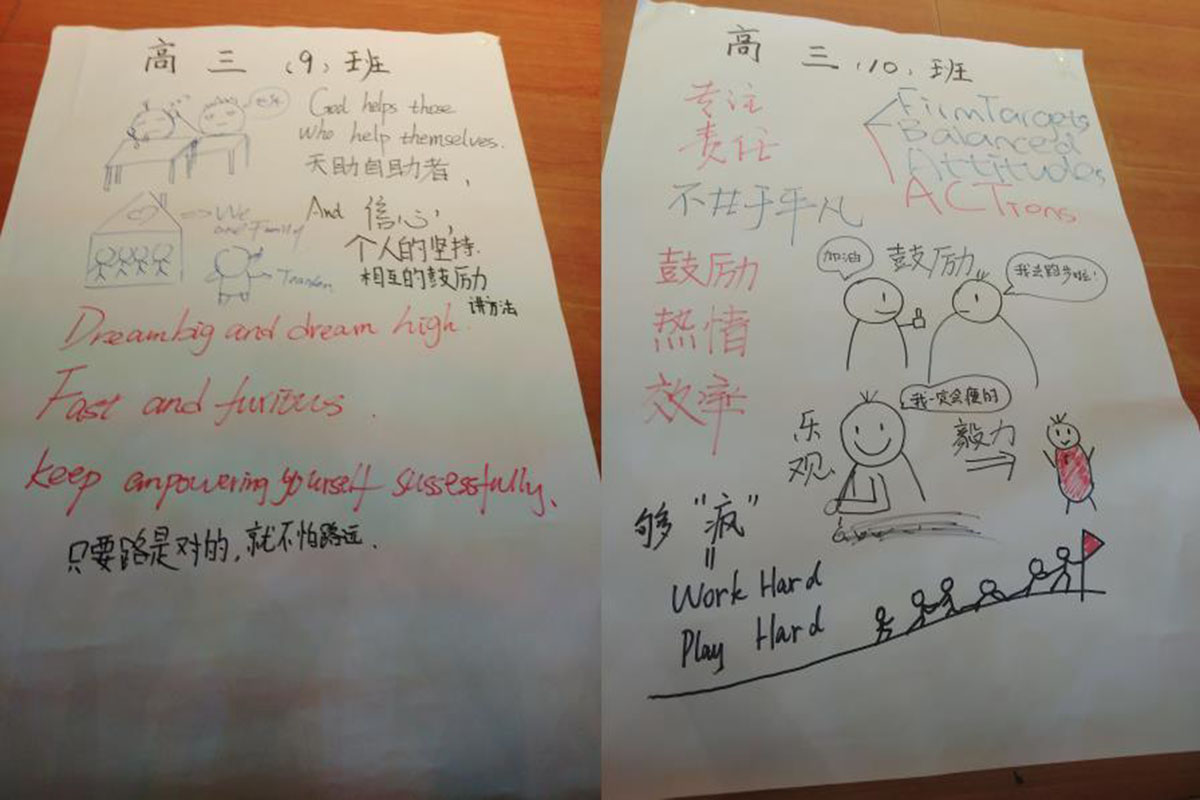 高三（9）班
God helps those
who help themselves.
天助自助者，
We
are Family
And 信心，
个人的坚持.
相互的鼓励
讲方法
Dream big and dream high.
Fast and furious.
keep empowering yourself sussessfully.
只要路是对的，就不怕路远.
高三（10）班
专注
责任
不甘于平凡
鼓励
热情
效率
Firm Targets
Balanced
Attitudes
ACTions
加油
鼓励
我去跑步啦！
乐观
我一定会瘦的
毅力
够“疯”
=
Work Hard
Play Hard